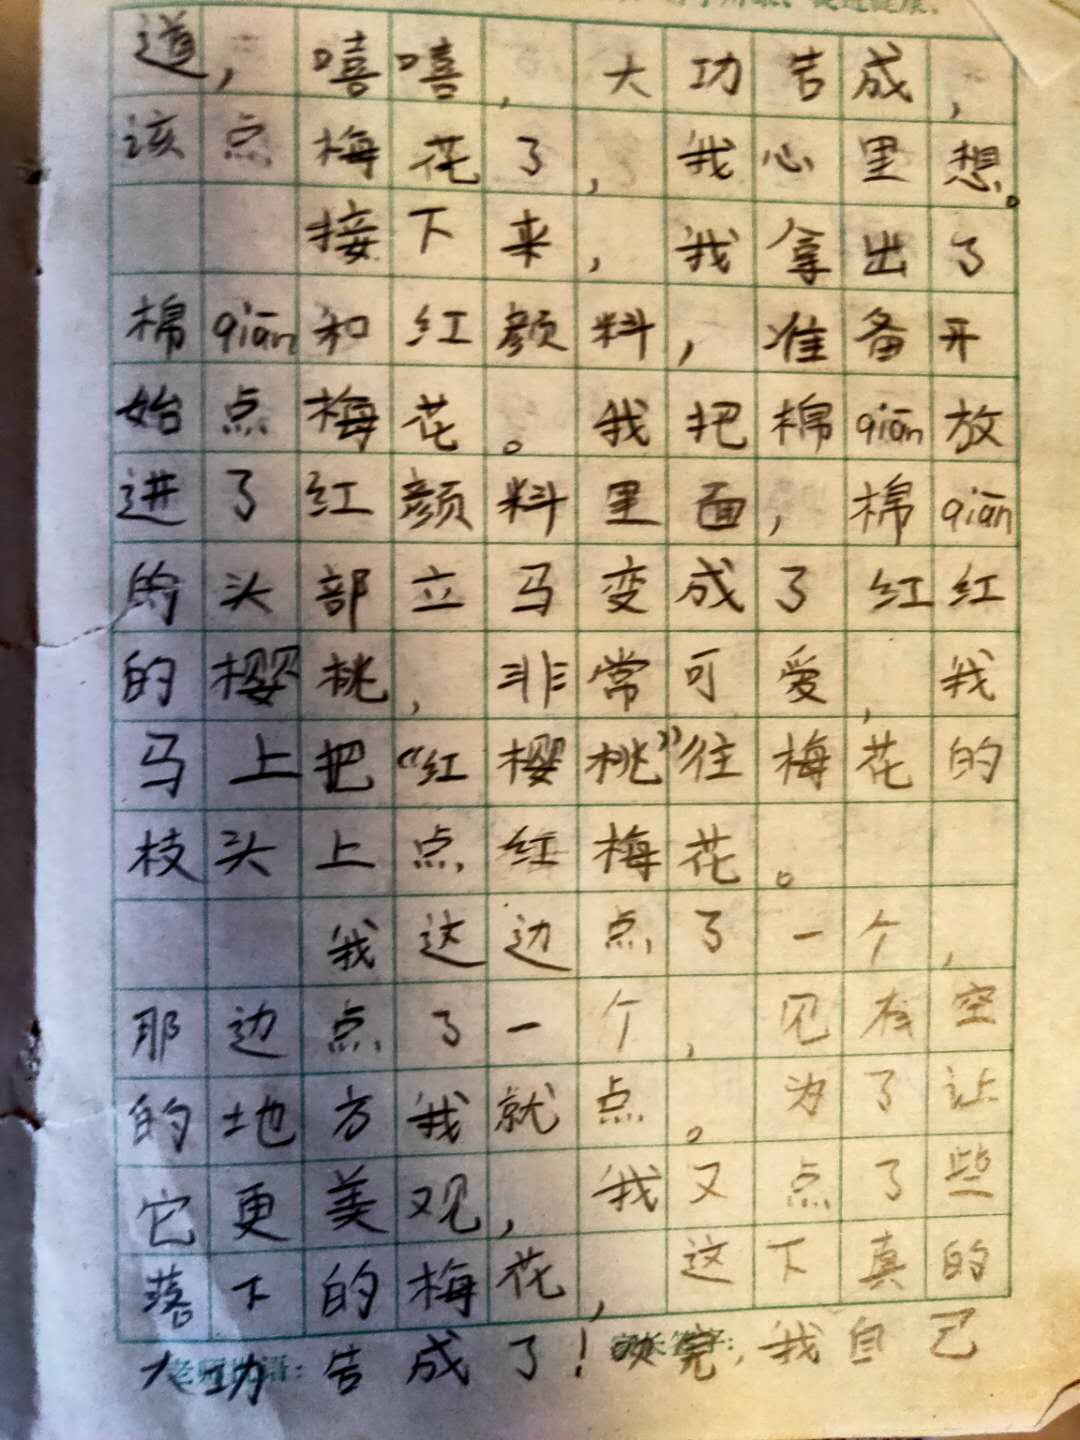 道，嘻嘻，大功告成，
该点梅花了，我心里想。
接下来，我拿出了
棉qiān和红颜料，准备开
始点梅花。我把棉qiān放
进了红颜料里面，棉qiān
的头部立马变成了红红
的樱桃，非常可爱，我
马上把“红樱桃”往梅花的
枝头上点红梅花。
我这边点了一个，
那边点了一个，见有空
的地方我就点。为了让
它更美观，我又点了些
落下的梅花，这下真的
大功告成了！完，我自己